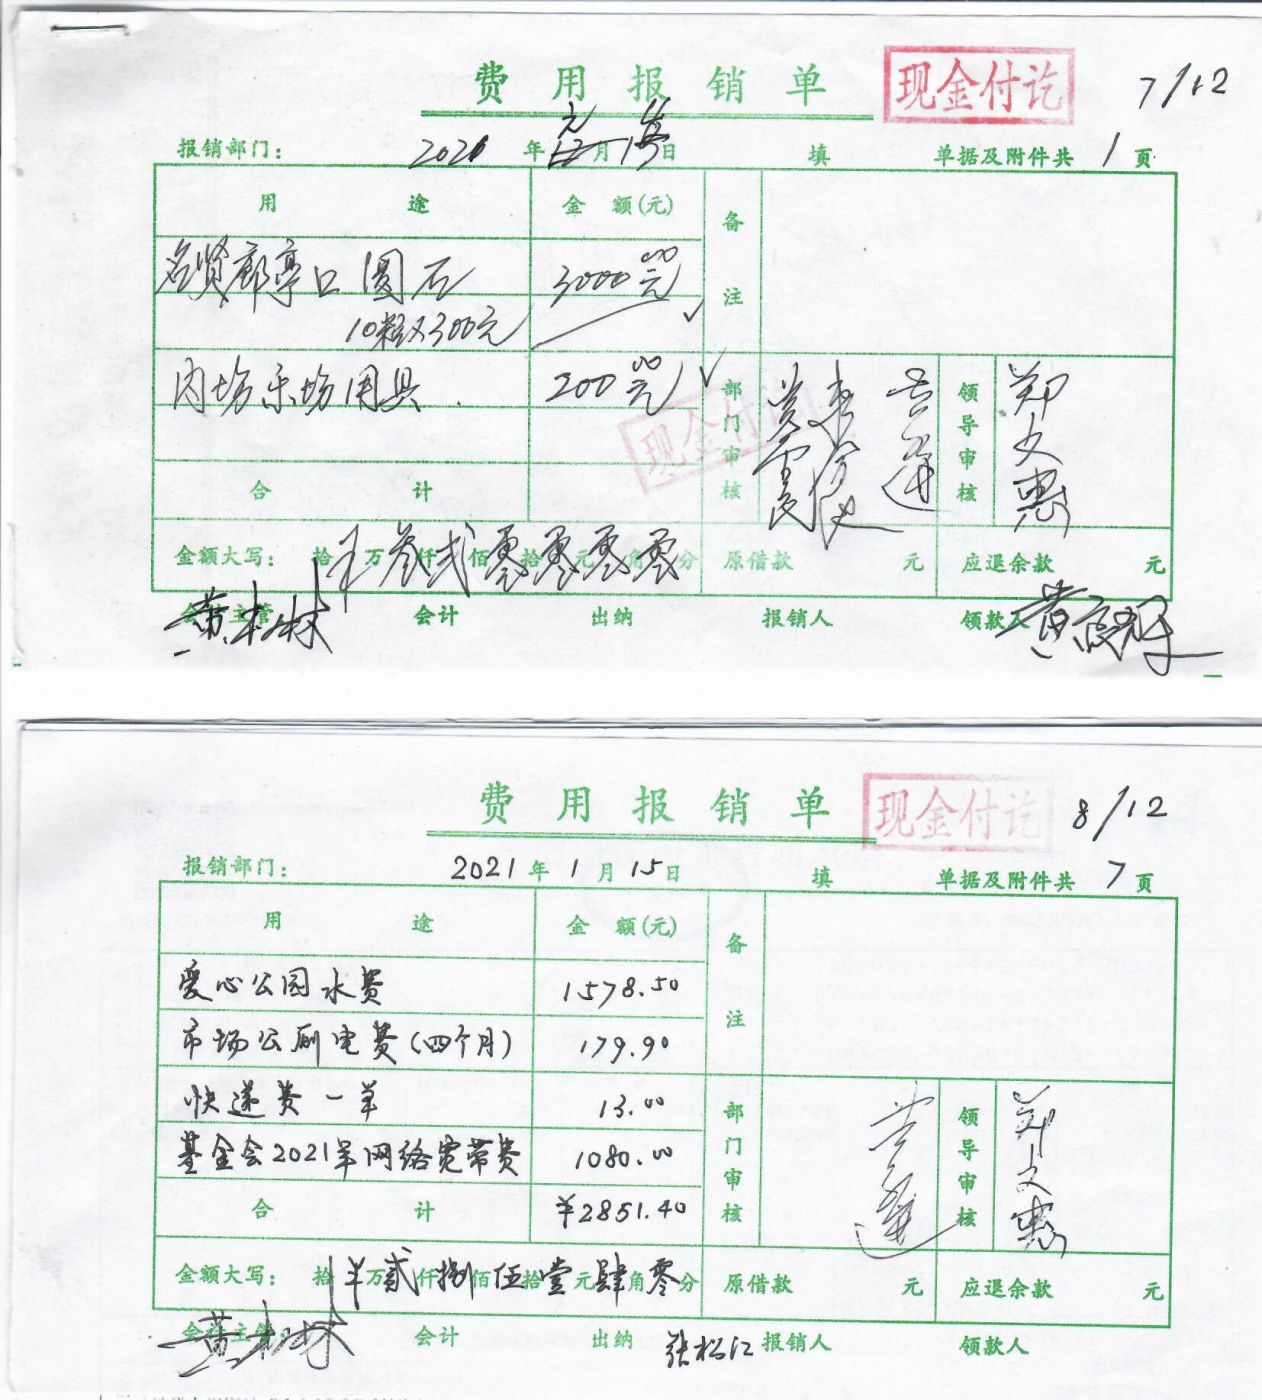 费用报销单 现金付讫 7/12
报销部门： 2021年元月15日 填 单据及附件共1页
用途 金额(元) 备注
名贤廊亭口圆石 3000.00元
10粒×300元
内场乐场用具 200.00元
现金付讫
部门审核 领导审核 郑文惠
合计
金额大写： 拾万叁仟贰佰零拾零元零角零分 原借款 元 应退余款 元
会计主管 会计 出纳 报销人 领款人
黄木林
费用报销单 现金付讫 8/12
报销部门： 2021年1月15日 填 单据及附件共7页
用途 金额(元) 备注
爱心公园水费 1578.50
市场公厕电费(四个月) 179.90
快递费一单 13.00
基金会2021年网络宽带费 1080.00
部门审核 领导审核 郑文惠
合计 ¥2851.40
金额大写： 拾万贰仟捌佰伍拾壹元肆角零分 原借款 元 应退余款 元
会计主管 会计 出纳 张松江 报销人 领款人
黄木林